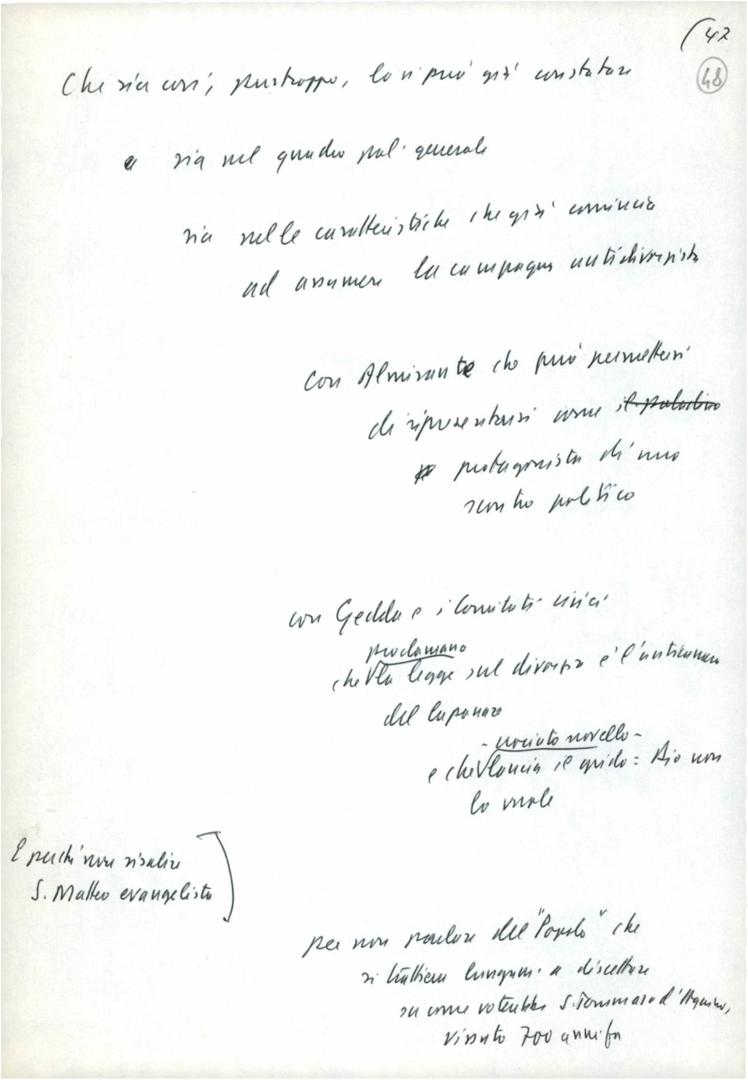 (42
48
Che sia così, purtroppo, lo si può già constatare
sia nel quadro pol. generale
sia nelle caratteristiche che già comincia
ad assumere la campagna antidivorzista
con Almirante che può permettersi
di ripresentarsi come il paladino
protagonista di uno
scontro politico
con Gedda e i Comitati civici
proclamano
che la legge sul divorzio è l'anticamera
del lupanare
- crociato novello -
e che lancia il grido: Dio non
lo vuole
E perché non risalire
S. Matteo evangelista
per non parlare del "Popolo" che
si trattiene lungam. a discettare
su come voterebbe S. Tommaso d'Aquino,
vissuto 700 anni fa